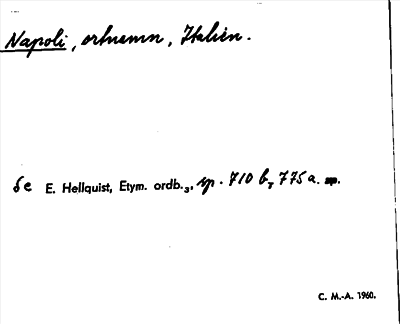 Napoli, ortnamn, Italien.
Se E. Hellquist, Etym. ordb.₃, sp. 710 b, 775 a.
C. M.-A. 1960.